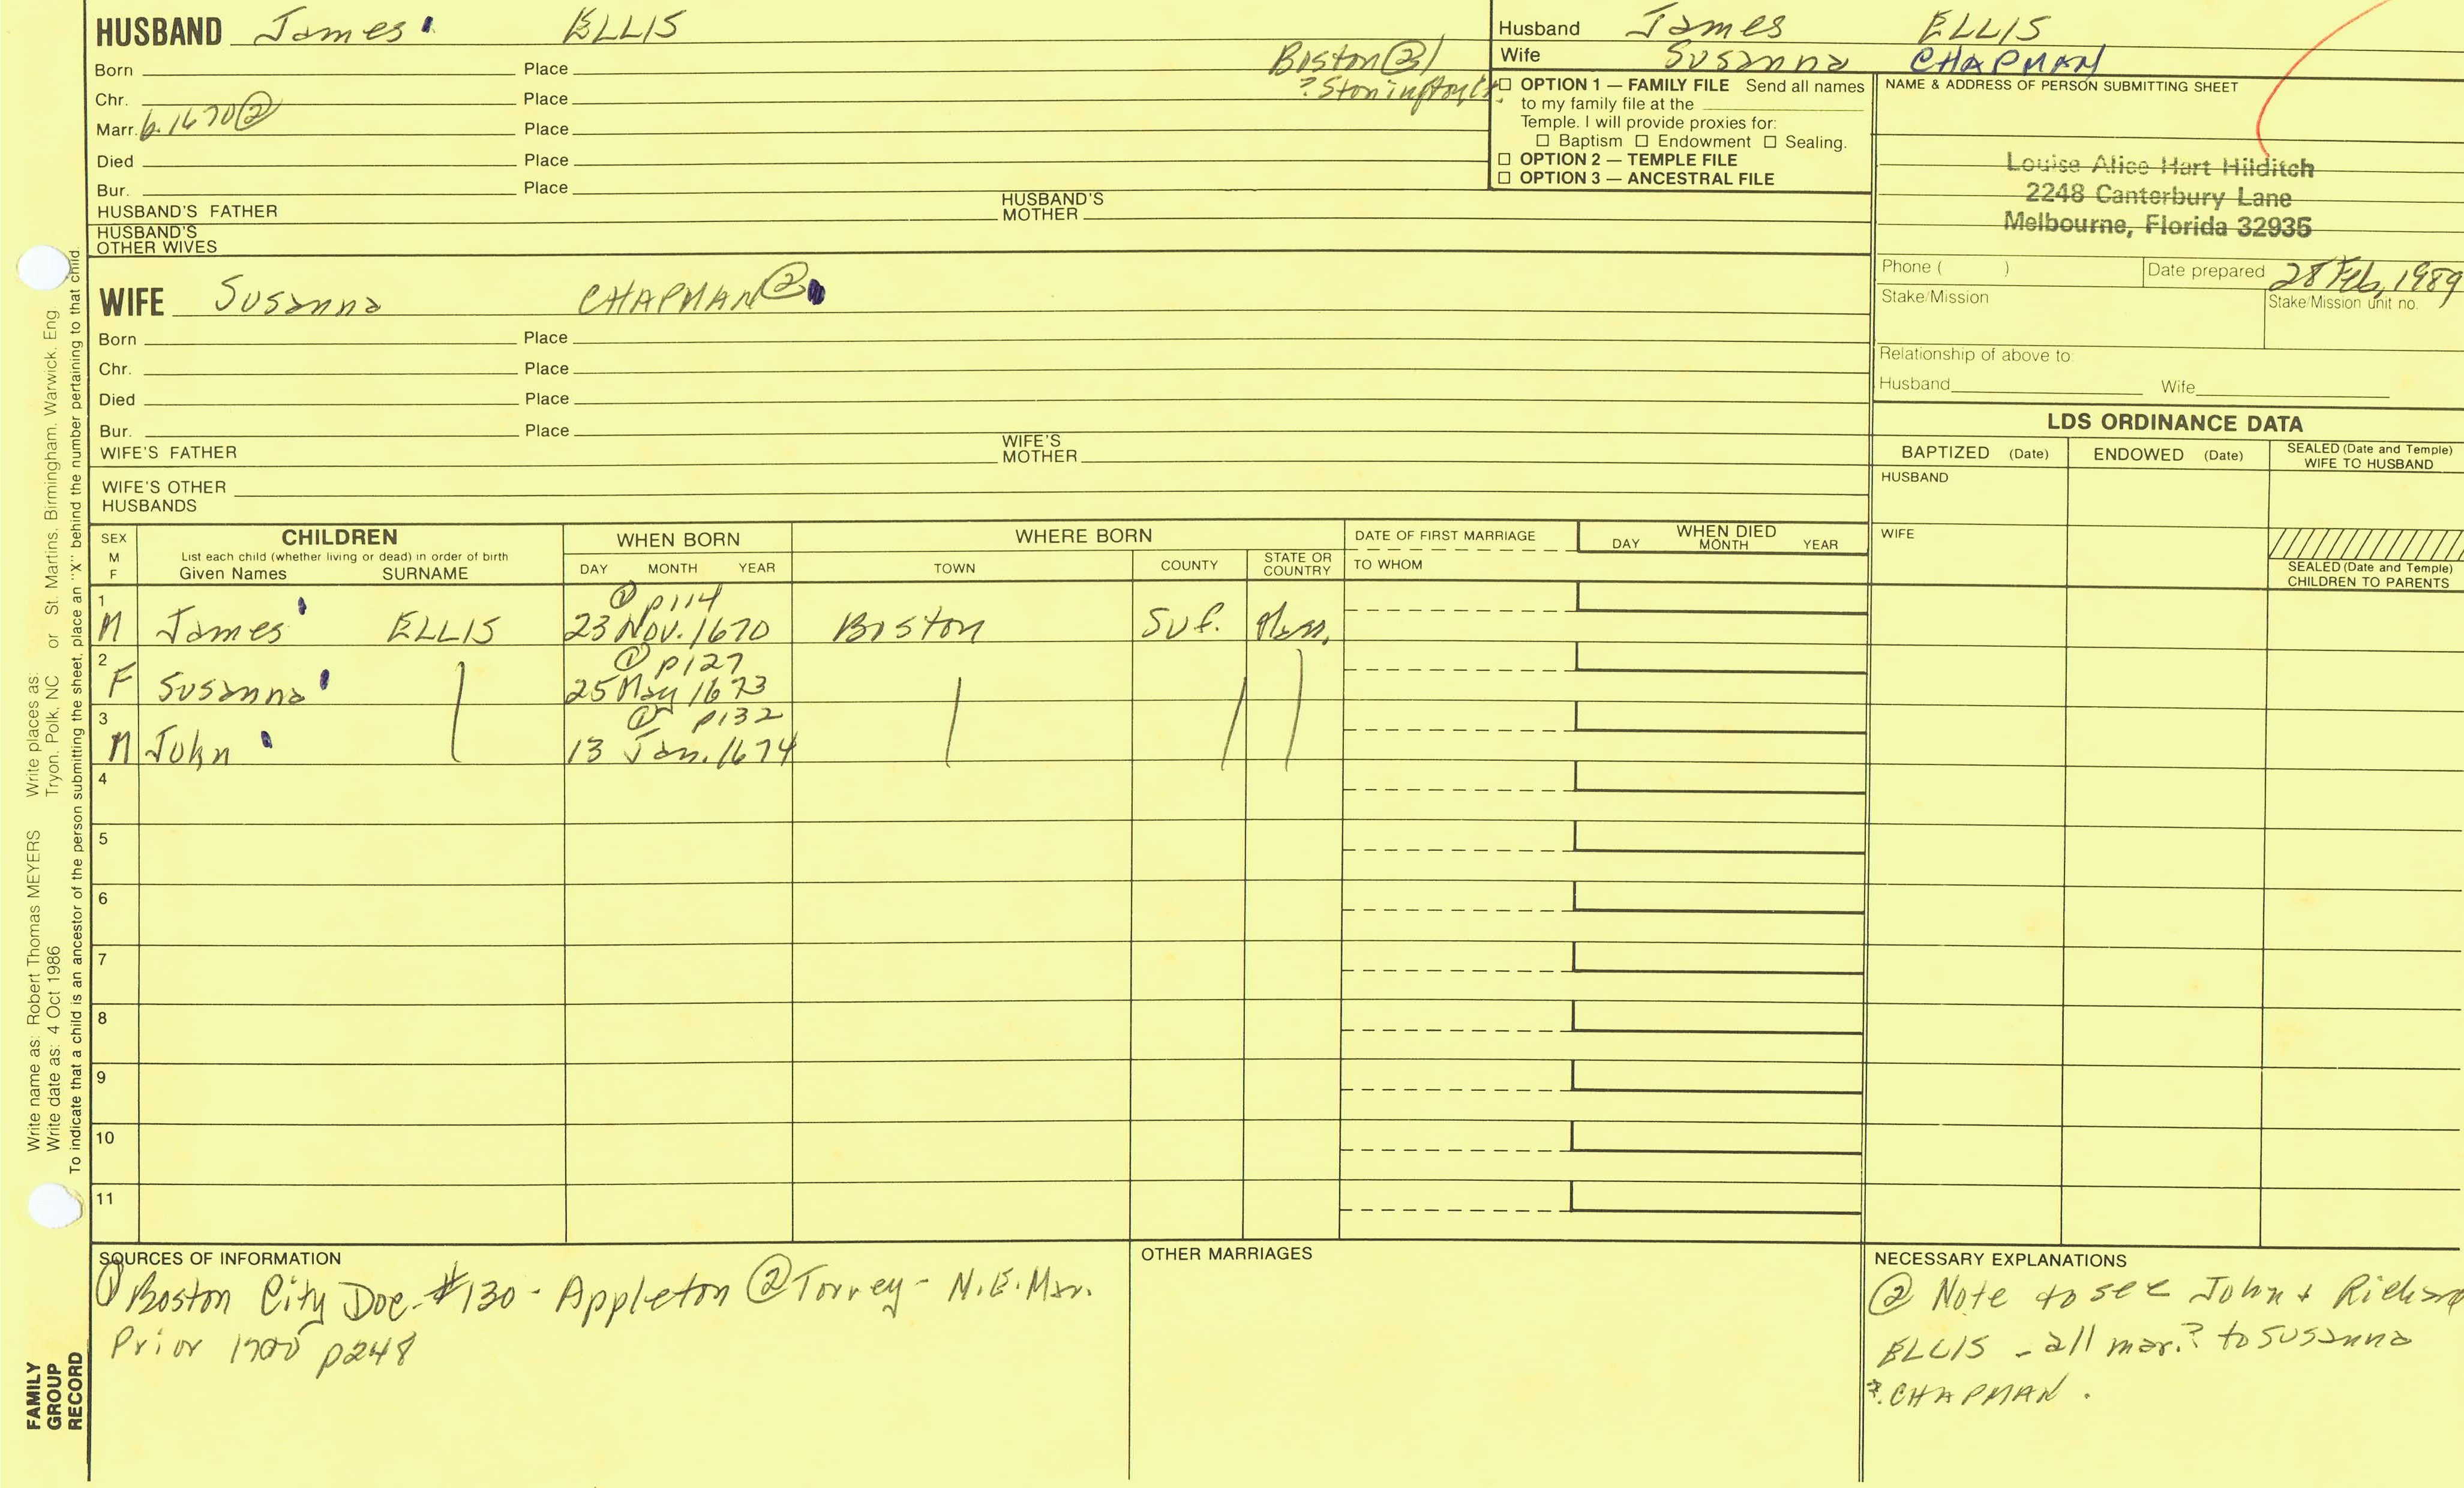 HUSBAND James ELLIS
Born Place Boston ②/
Chr. Place ? Stonington Ct.
Marr. b. 1670 ② Place
Died Place
Bur. Place
HUSBAND'S FATHER HUSBAND'S MOTHER
HUSBAND'S OTHER WIVES
Husband James ELLIS
Wife Susanna CHAPMAN
☐ OPTION 1 — FAMILY FILE Send all names
to my family file at the
Temple. I will provide proxies for:
☐ Baptism ☐ Endowment ☐ Sealing.
☐ OPTION 2 — TEMPLE FILE
☐ OPTION 3 — ANCESTRAL FILE
NAME & ADDRESS OF PERSON SUBMITTING SHEET
Louise Alice Hart Hilditch
2248 Canterbury Lane
Melbourne, Florida 32935
Phone ( ) Date prepared 28 Feb, 1989
Stake/Mission Stake/Mission unit no.
Relationship of above to:
Husband Wife
WIFE Susanna CHAPMAN ②
Born Place
Chr. Place
Died Place
Bur. Place
WIFE'S FATHER WIFE'S MOTHER
WIFE'S OTHER HUSBANDS
LDS ORDINANCE DATA
BAPTIZED (Date) ENDOWED (Date) SEALED (Date and Temple) WIFE TO HUSBAND
HUSBAND
WIFE
SEALED (Date and Temple) CHILDREN TO PARENTS
SEX M F
CHILDREN
List each child (whether living or dead) in order of birth
Given Names SURNAME
WHEN BORN
DAY MONTH YEAR
WHERE BORN
TOWN COUNTY STATE OR COUNTRY
DATE OF FIRST MARRIAGE
TO WHOM
WHEN DIED
DAY MONTH YEAR
1 ① p114
M James ELLIS 23 Nov. 1670 Boston Suf. Mass.
2 ① p127
F Susanna 25 May 1673
3 ① p132
M John 13 Jan. 1674
4
5
6
7
8
9
10
11
SOURCES OF INFORMATION
① Boston City Doc. #130 - Appleton ② Torrey - N.E. Mar.
Prior 1700 p248
OTHER MARRIAGES
NECESSARY EXPLANATIONS
② Note to see John +
ELLIS - all mar.? to Susanna
?. CHAPMAN.
Write name as: Robert Thomas MEYERS Write places as: or St. Martins, Birmingham, Warwick, Eng.
Write date as: 4 Oct 1986 Tryon, Polk, NC
To indicate that a child is an ancestor of the person submitting the sheet, place an "X" behind the number pertaining to that child.
FAMILY
GROUP
RECORD